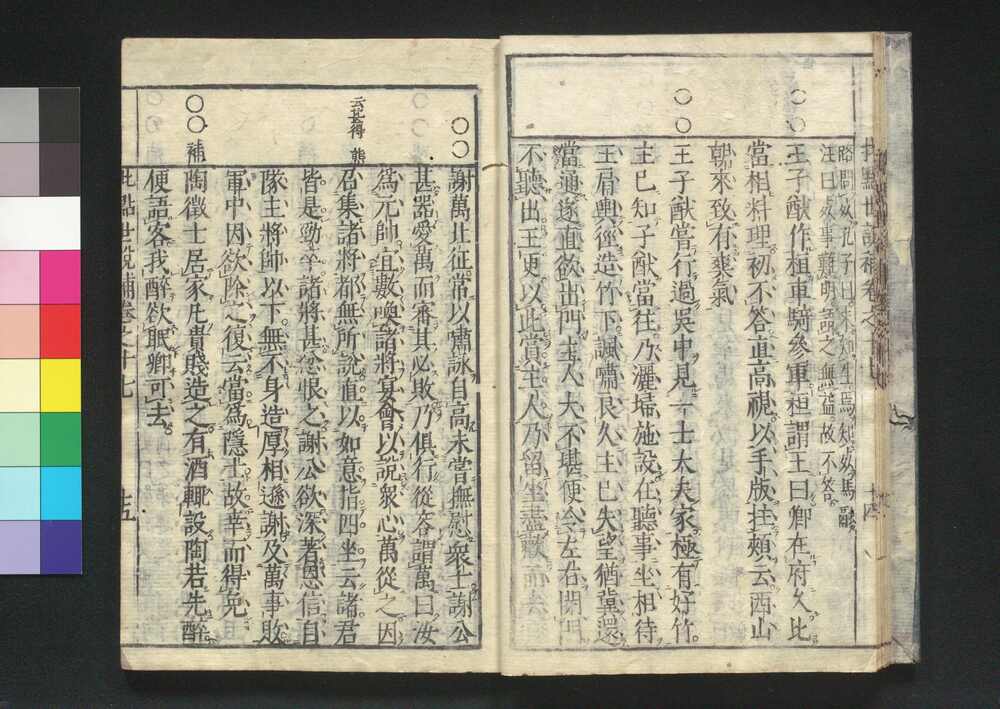 批點世說補卷之十七 十四
路問死孔子曰未知生焉知死馬融
注曰死事難明語之無益故不答
王子猷作桓車騎參軍桓謂王曰卿在府久比
當相料理初不答直高視以手版拄頰云西山
朝來致有爽氣
王子猷嘗行過吳中見一士大夫家極有好竹
主已知子猷當往乃灑埽施設在聽事坐相待
王肩輿徑造竹下諷嘯良久主已失望猶冀還
當通遂直欲出門主人大不堪便令左右閉門
不聽出王更以此賞主人乃留坐盡歡而去
謝萬北征常以嘯詠自高未嘗撫慰衆士謝公
甚器愛萬而審其必敗乃俱行從容謂萬曰汝
爲元帥宜數喚諸將宴會以說衆心萬從之因
召集諸將都無所說直以如意指四坐云諸君
皆是勁卒諸將甚忿恨之謝公欲深著恩信自
隊主將帥以下無不身造厚相遜謝及萬事敗
軍中因欲除之復云當爲隱士故幸而得免
補
陶徵士居家凡貴賤造之有酒輙設陶若先醉
便語客我醉欲眠卿可去
批點世說補卷之十七 十五